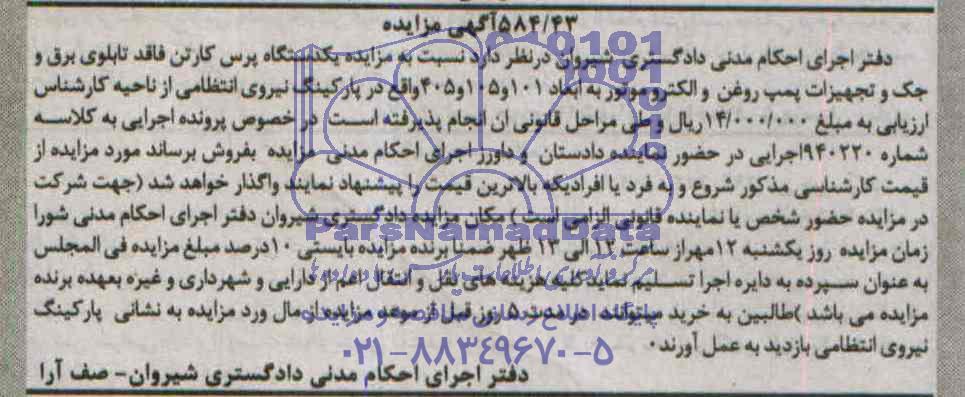 ۵۸۴/۴۳آگهی مزایده
دفتر اجرای احکام مدنی دادگستری شیروان درنظر دارد نسبت به مزایده یکدستگاه پرس کارتن فاقد تابلوی برق و
جک و تجهیزات پمپ روغن و الکترو موتور به ابعاد ۱۰۱ و۱۰۵ و۴۰۵واقع در پارکینگ نیروی انتظامی از ناحیه کارشناس
ارزیابی به مبلغ ۱۴/۰۰۰/۰۰۰ریال و طی مراحل قانونی ان انجام پذیرفته است در خصوص پرونده اجرایی به کلاسه
شماره ۹۴۰۲۲۰اجرایی در حضور نماینده دادستان و داورز اجرای احکام مدنی مزایده بفروش برساند مورد مزایده از
قیمت کارشناسی مذکور شروع و به فرد یا افرادیکه بالاترین قیمت را پیشنهاد نمایند واگذار خواهد شد (جهت شرکت
در مزایده حضور شخص یا نماینده قانونی الزامی است ) مکان مزایده دادگستری شیروان دفتر اجرای احکام مدنی شورا
زمان مزایده روز یکشنبه ۱۲مهراز ساعت ۱۲ الی ۱۳ ظهر ضمنا برنده مزایده بایستی ۱۰درصد مبلغ مزایده فی المجلس
به عنوان سپرده به دایره اجرا تسلیم نماید کلیه هزینه های نقل و انتقال اعم از دارایی و شهرداری و غیره بعهده برنده
مزایده می باشد )طالبین به خرید میتوانند در مدت ۵ روز قبل از موعد مزایده از مال ورد مزایده به نشانی پارکینگ
نیروی انتظامی بازدید به عمل آورند.
دفتر اجرای احکام مدنی دادگستری شیروان- صف آرا
ParsNamadData
۰۲۱-۸۸۳۴۹۶۷۰-۵